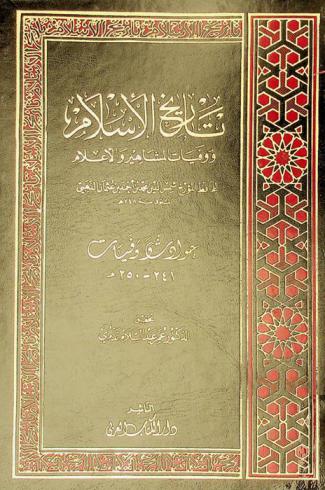 تاريخ الإسلام
ووفيات المشاهير والأعلام
للحافظ المؤرخ شمس الدين محمد بن أحمد بن عثمان الذهبي
المتوفى سنة ٧٤٨ هـ
حوادث ووفيات
٢٤١ - ٢٥٠ هـ
تحقيق
الدكتور عمر عبد السلام تدمري
الناشر
دار الكتاب العربي